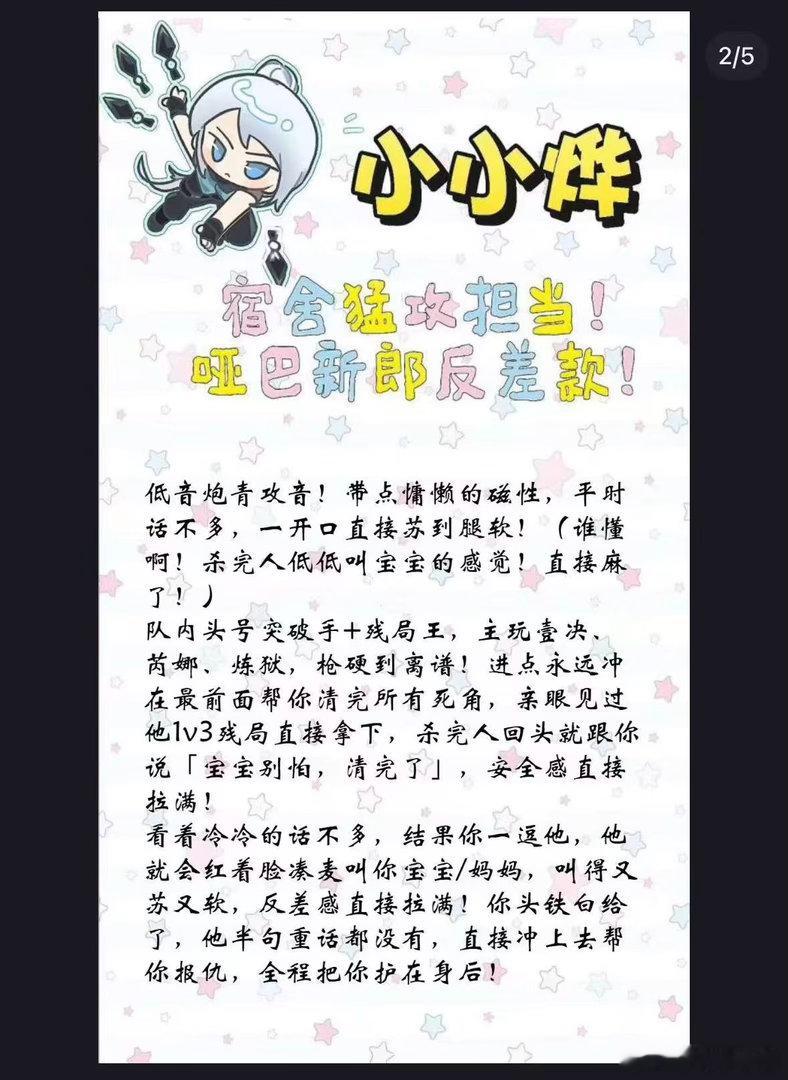 2/5
小小烨
宿舍猛攻担当!
哑巴新郎反差款!
低音炮青攻音!带点慵懒的磁性,平时
话不多,一开口直接苏到腿软!(谁懂
啊!杀完人低低叫宝宝的感觉!直接麻
了!)
队内头号突破手+残局王,主玩壹决、
芮娜、炼狱,枪硬到离谱!进点永远冲
在最前面帮你清完所有死角,亲眼见过
他1v3残局直接拿下,杀完人回头就跟你
说「宝宝别怕,清完了」,安全感直接
拉满!
看着冷冷的话不多,结果你一逗他,他
就会红着脸凑麦叫你宝宝/妈妈,叫得又
苏又软,反差感直接拉满!你头铁白给
了,他半句重话都没有,直接冲上去帮
你报仇,全程把你护在身后!